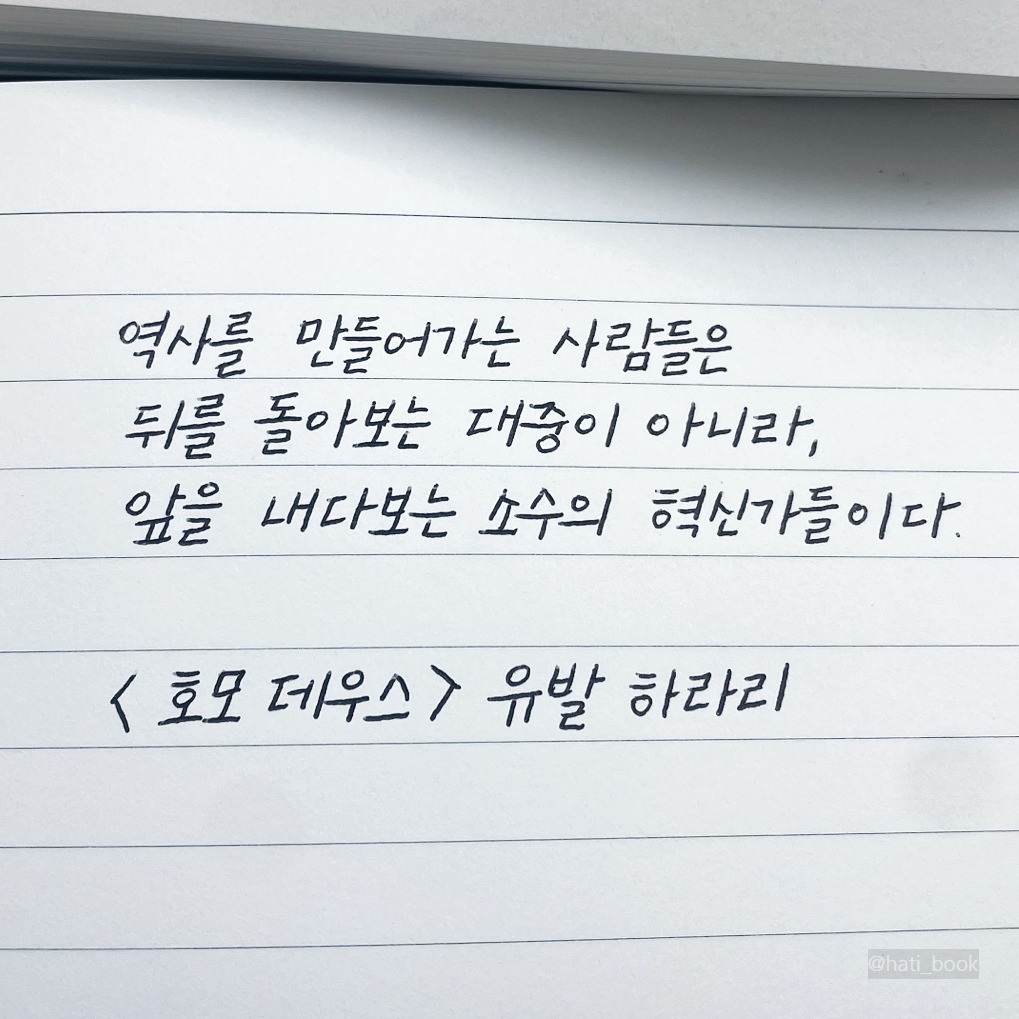 역사를 만들어가는 사람들은
뒤를 돌아보는 대중이 아니라,
앞을 내다보는 소수의 혁신가들이다.
< 호모 데우스 > 유발 하라리
@hati_book